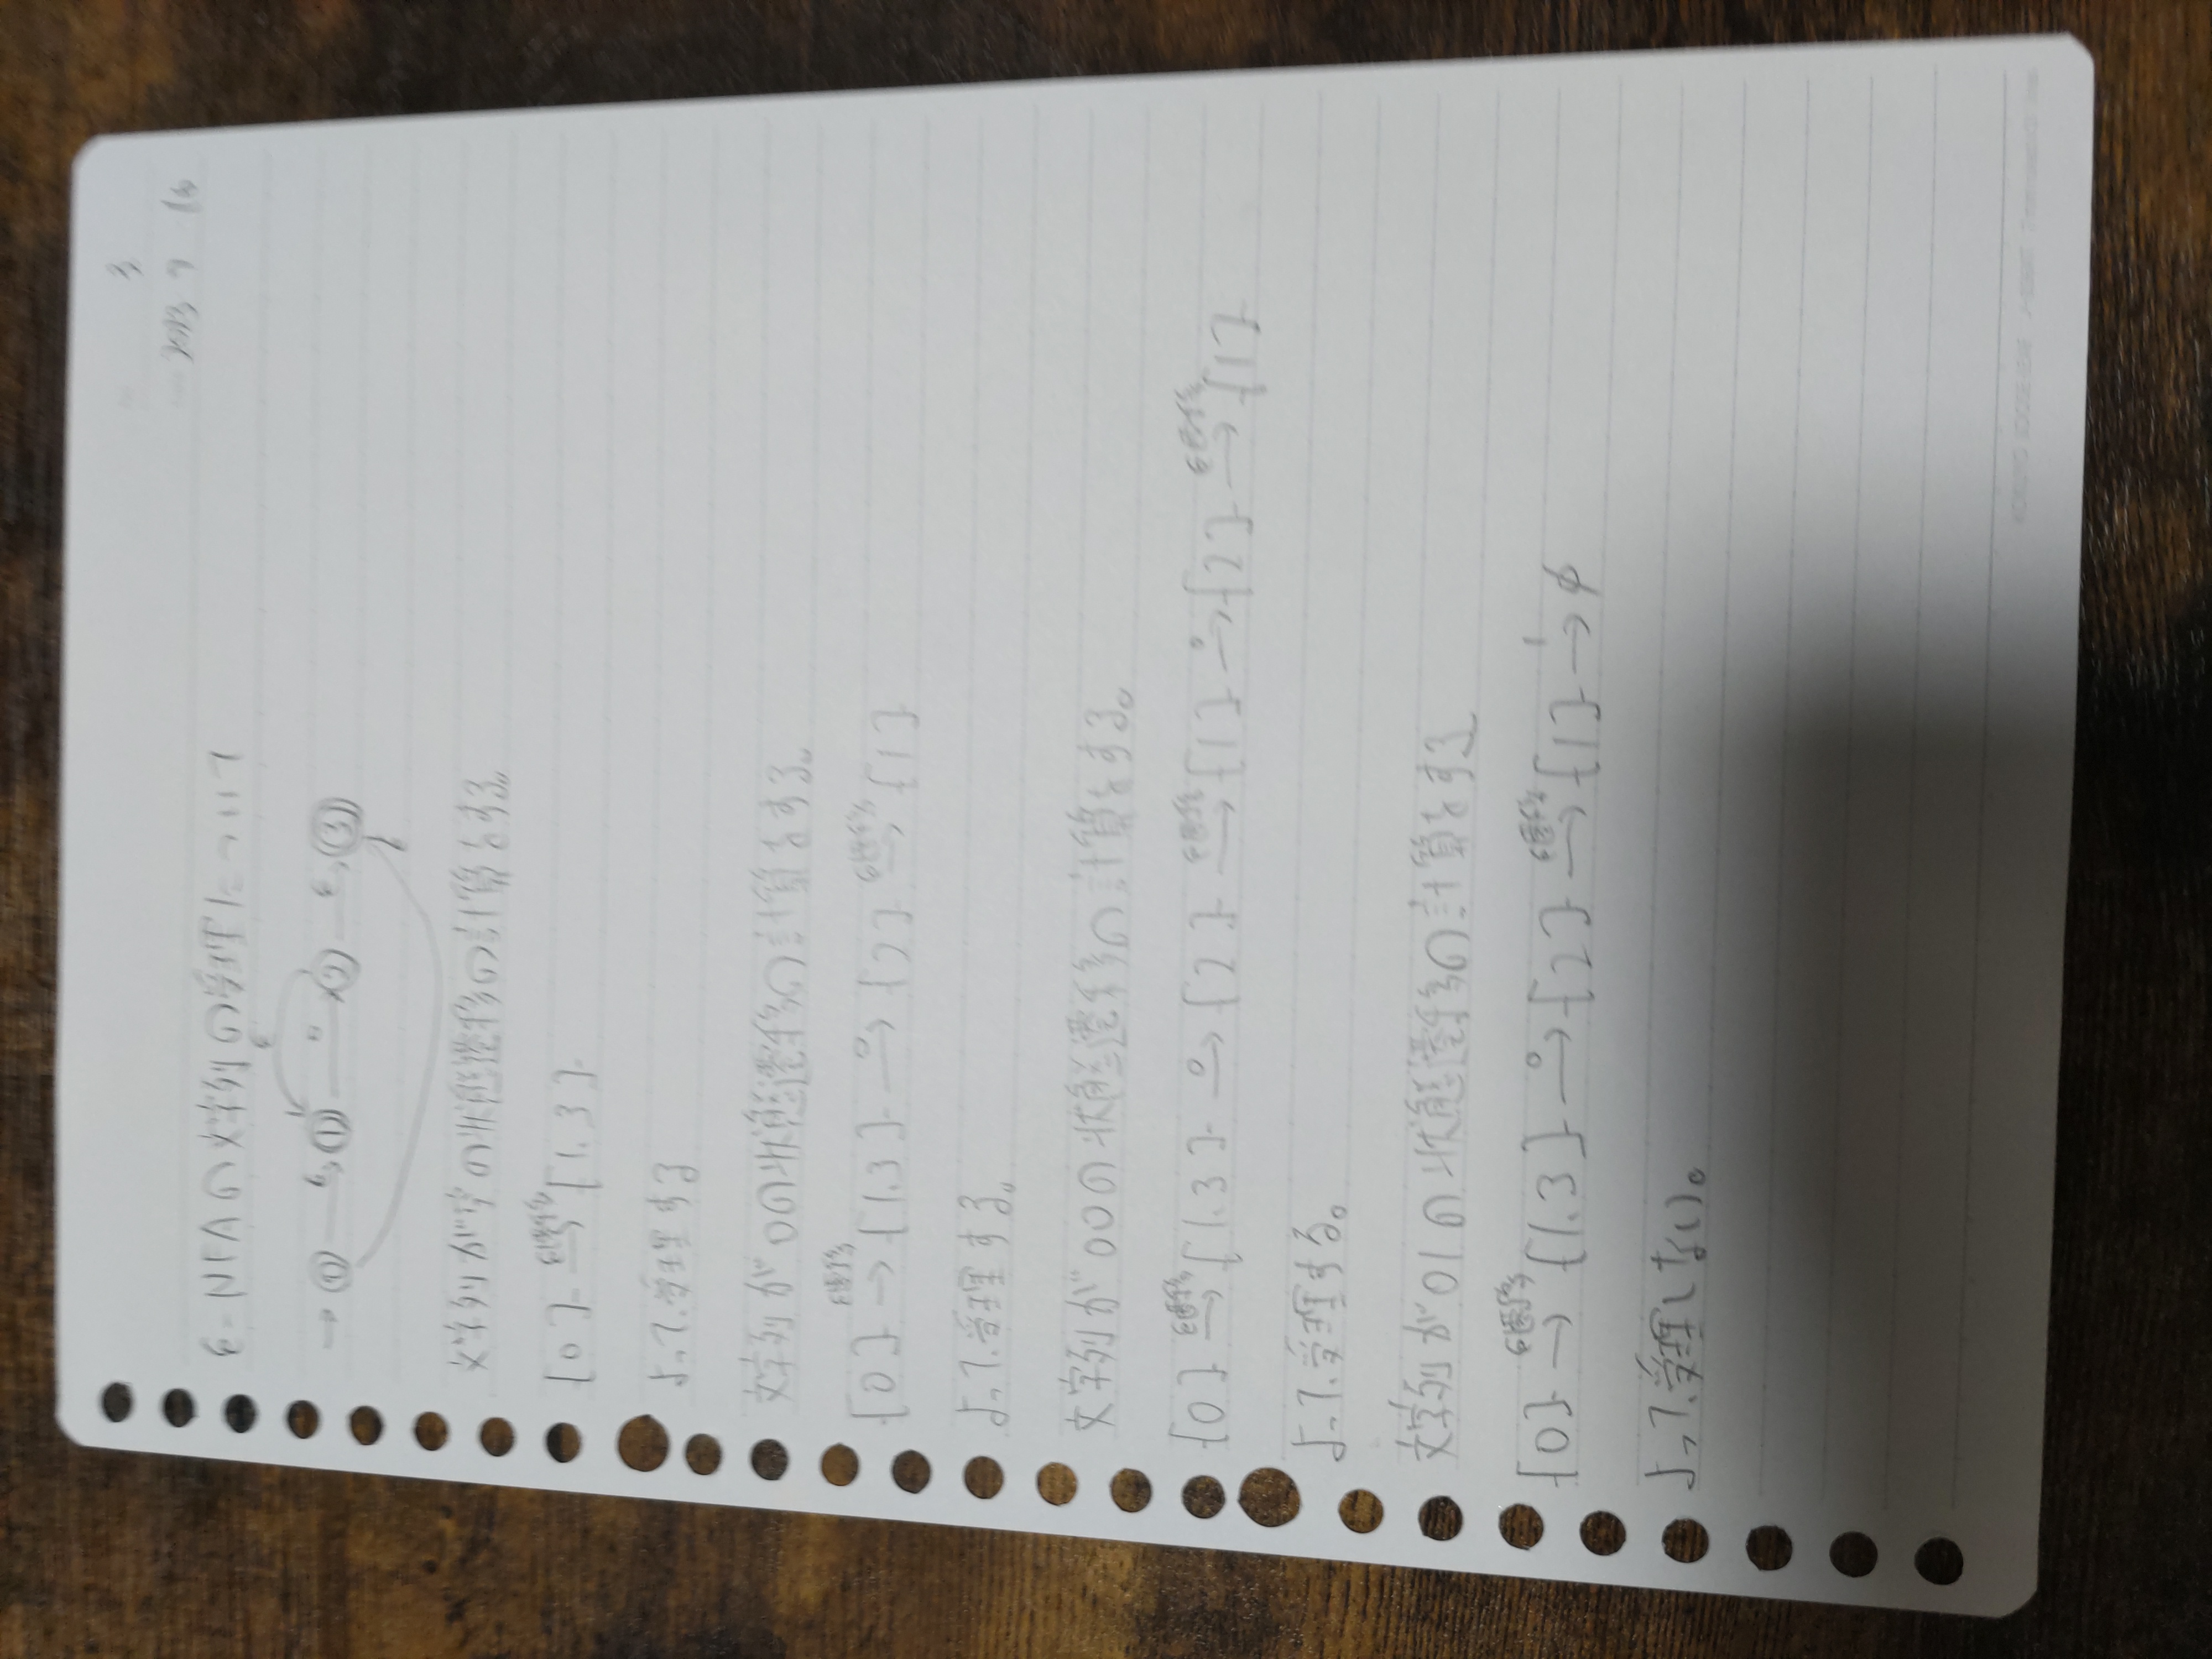 3
2023 9 16
ε-NFAの文字列の受理について
ε
→ 0 ε 1 0 2 ε 3
文字列が空の状態遷移の計算をする。
{0} ε遷移→ {1.3}
よって.受理する
文字列が0の状態遷移の計算をする。
{0} ε遷移→ {1.3} 0→ {2} ε遷移→ {1}
よって.受理する。
文字列が00の状態遷移の計算をする。
{0} ε遷移→ {1.3} 0→ {2} ε遷移→ {1} 0→ {2} ε遷移→ {1}
よって.受理する。
文字列が01の状態遷移の計算をする
{0} ε遷移→ {1.3} 0→ {2} ε遷移→ {1} 1→ φ
よって.受理しない。
KOKUYO LOOSE-LEAF